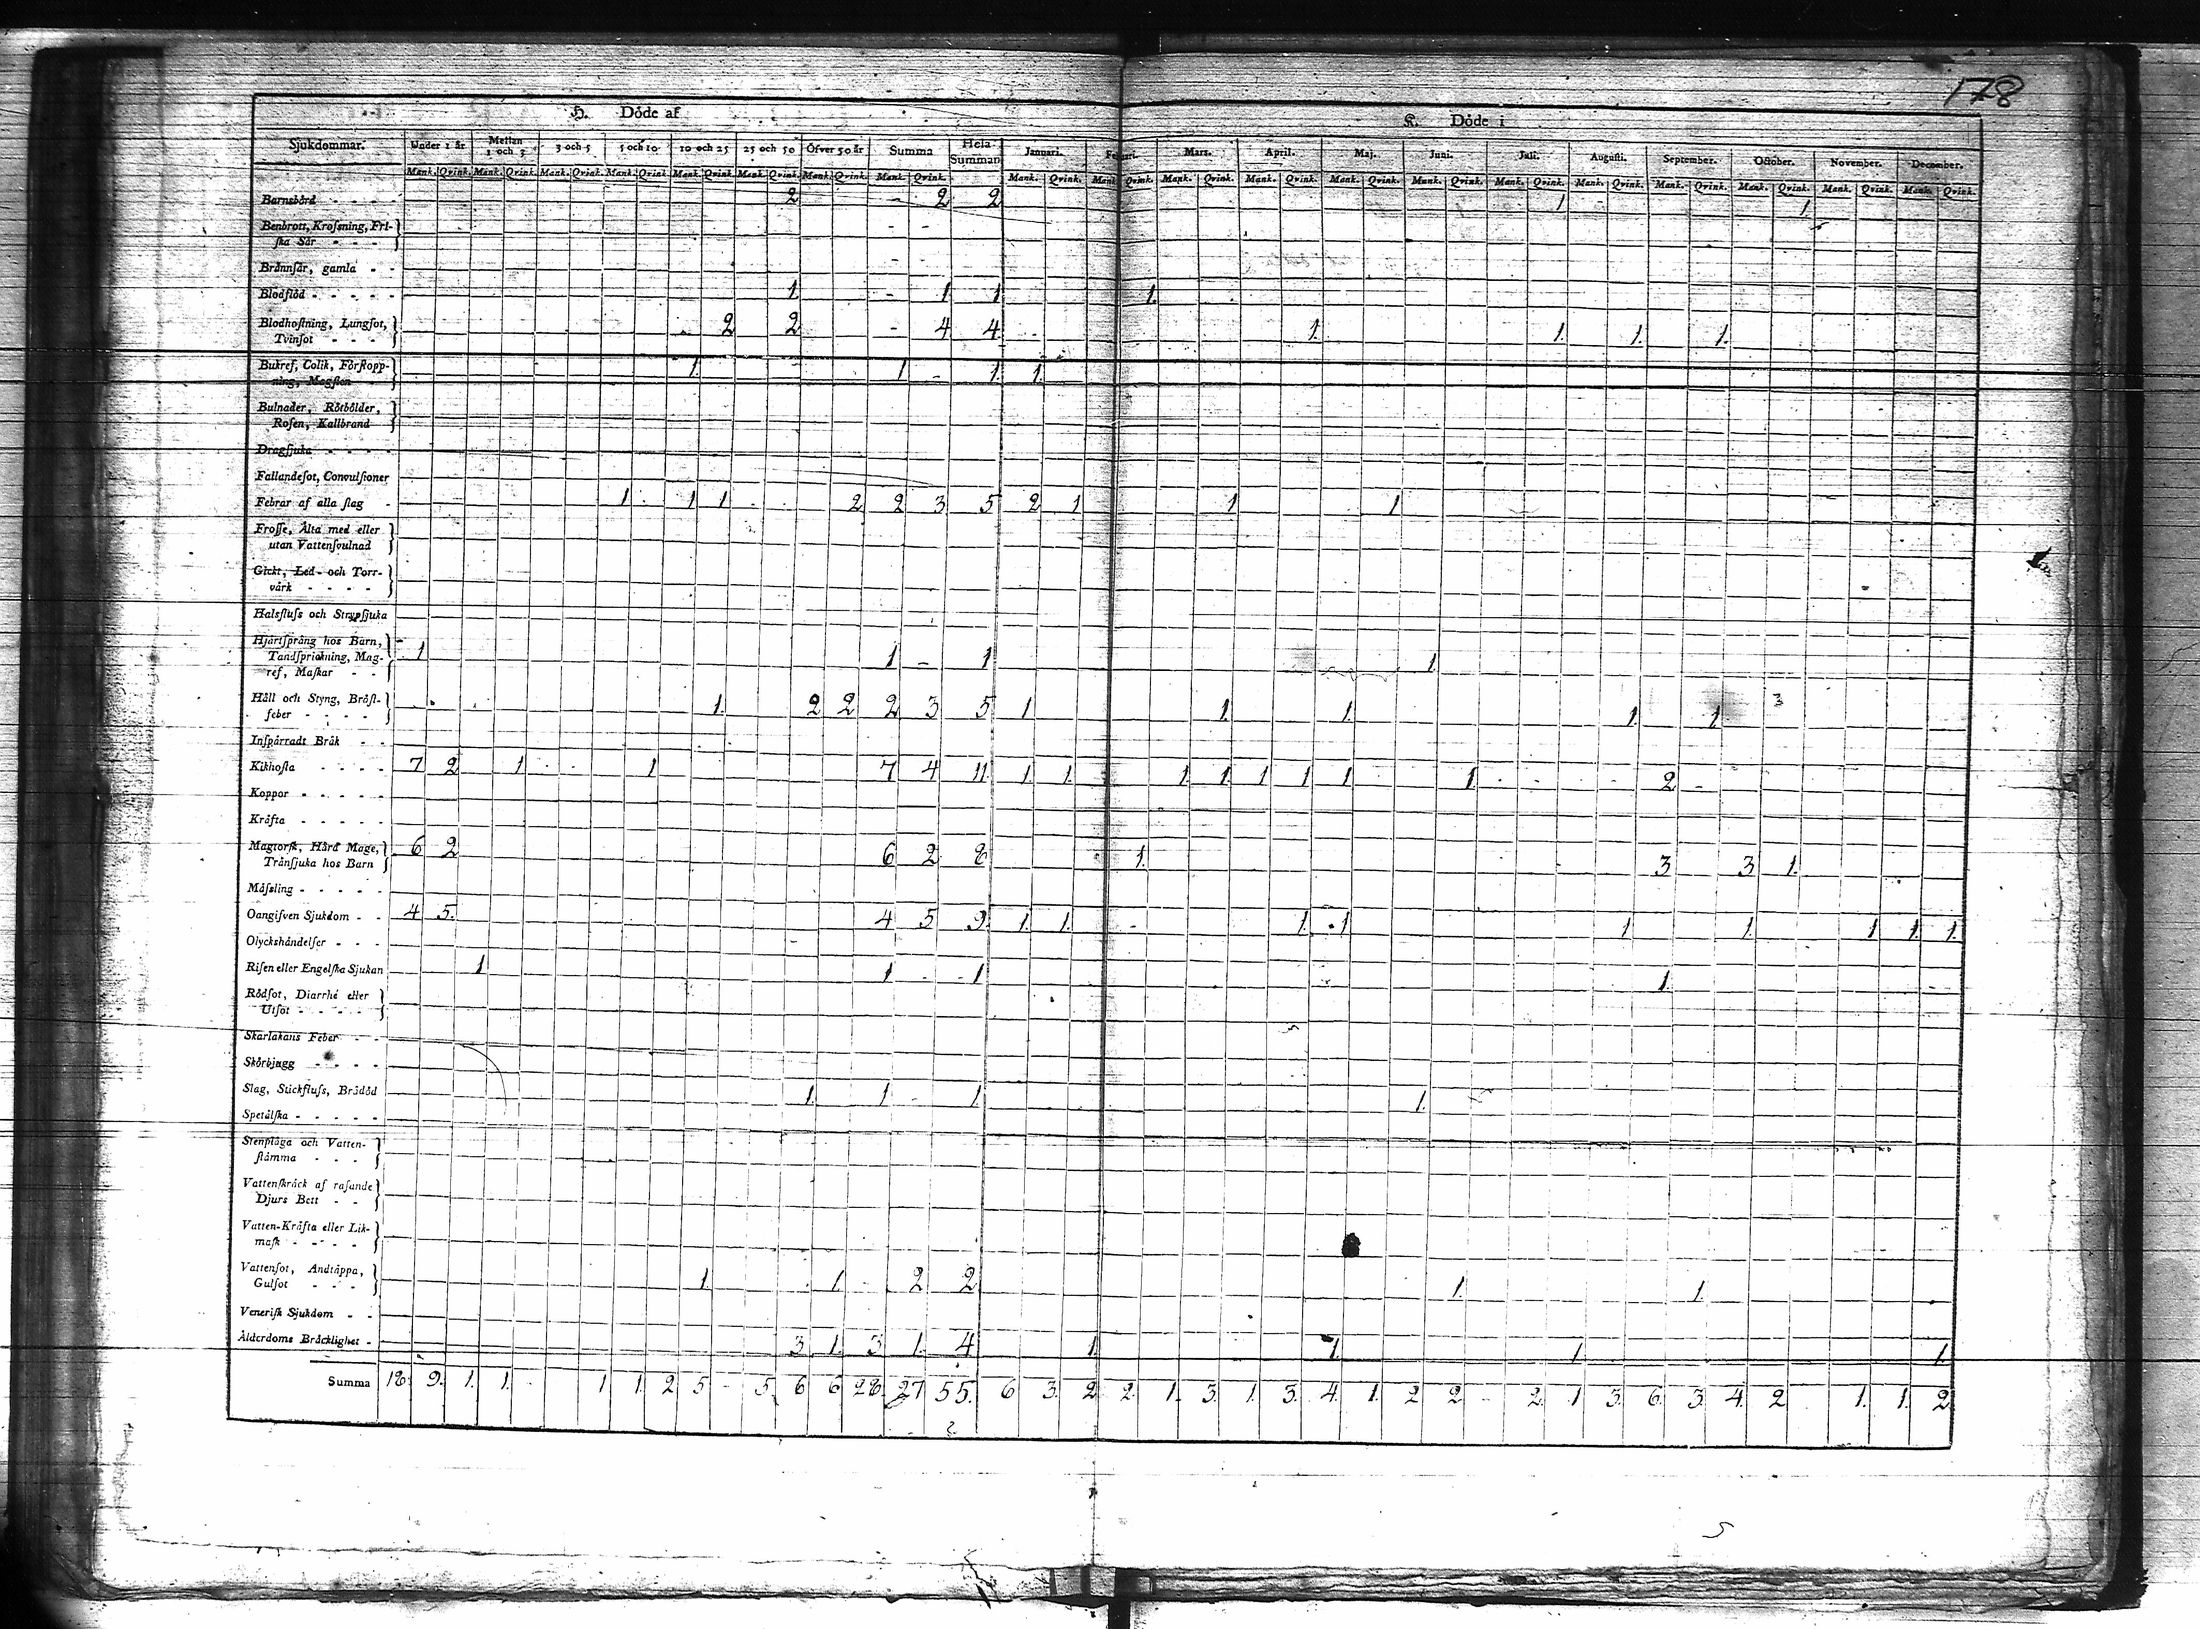 178
H. Döde af K. Döde i
Sjukdommar. Under 1 år Mellan 1 och 3 3 och 5 5 och 10 10 och 25 25 och 50 Öfver 50 år Summa Hela Summan Januari. Februari. Mars. April. Maj. Juni. Juli. Augusti. September. October. November. December.
Mank. Qvink. Mank. Qvink. Mank. Qvink. Mank. Qvink. Mank. Qvink. Mank. Qvink. Mank. Qvink. Mank. Qvink. Mank. Qvink. Mank. Qvink. Mank. Qvink. Mank. Qvink. Mank. Qvink. Mank. Qvink. Mank. Qvink. Mank. Qvink. Mank. Qvink. Mank. Qvink. Mank. Qvink. Mank. Qvink.
Barnsbörd - - - - 2 - 2 2 1 1
Benbrott, Krosſning, Fri-
ſka Sår - - - -
Brännſår, gamla - -
Blodflöd - - - - - 1 - 1 1 1
Blodhoſtning, Lungſot,
Tvinſot - - - - 2 2 - 4 4 1 1 1 1
Bukref, Colik, Förſtopp-
ning, Magſten 1 1 - 1 1
Bulnader, Rötbölder,
Roſen, Kallbrand
Dragſjuka - - - -
Fallandeſot, Convulſioner
Febrar af alla ſlag - 1 1 1 2 2 3 5 2 1 1 1
Froſſe, Älta med eller
utan Vattenſvulnad
Gickt, Led- och Torr-
värk - - - -
Halsfluſs och Strypſjuka
Hjärtſprång hos Barn,
Tandſprickning, Mag-
ref, Maſkar - - 1 1 - 1 1
Håll och Styng, Bröſt-
feber - - - - 1 2 2 2 3 5 1 1 1 1 1 3
Inſpärradt Bråk - -
Kikhoſta - - - - 7 2 1 1 7 4 11 1 1 1 1 1 1 1 1 2
Koppor - - - - -
Kräfta - - - - -
Magtorſk, Hård Mage,
Tränſjuka hos Barn 6 2 6 2 8 1 3 3 1
Måſsling - - - - -
Oangifven Sjukdom - - 4 5 4 5 9 1 1 1 1 1 1 1 1 1
Olyckshändelſer - - -
Riſen eller Engelſka Sjukan 1 1 - 1 1
Rödſot, Diarrhé eller
Utſot - - - - -
Skarlakans Feber - -
Skörbjugg - - - -
Slag, Stickfluſs, Brådöd 1 1 1 1
Spetälſka - - - - -
Stenplåga och Vatten-
ſtämma - - -
Vattenſkräck af raſande
Djurs Bett - -
Vatten-Kräfta eller Lik-
maſk - - - -
Vattenſot, Andtäppa,
Gulſot - - - 1 1 2 2 1 1
Veneriſk Sjukdom - -
Ålderdoms Bräcklighet - 3 1 3 1 4 1 1 1 1
Summa 18 9 1 1 1 1 2 5 - 5 6 6 28 27 55 6 3 2 2 1 3 1 3 4 1 2 2 - 2 1 3 6 3 4 2 1 1 2